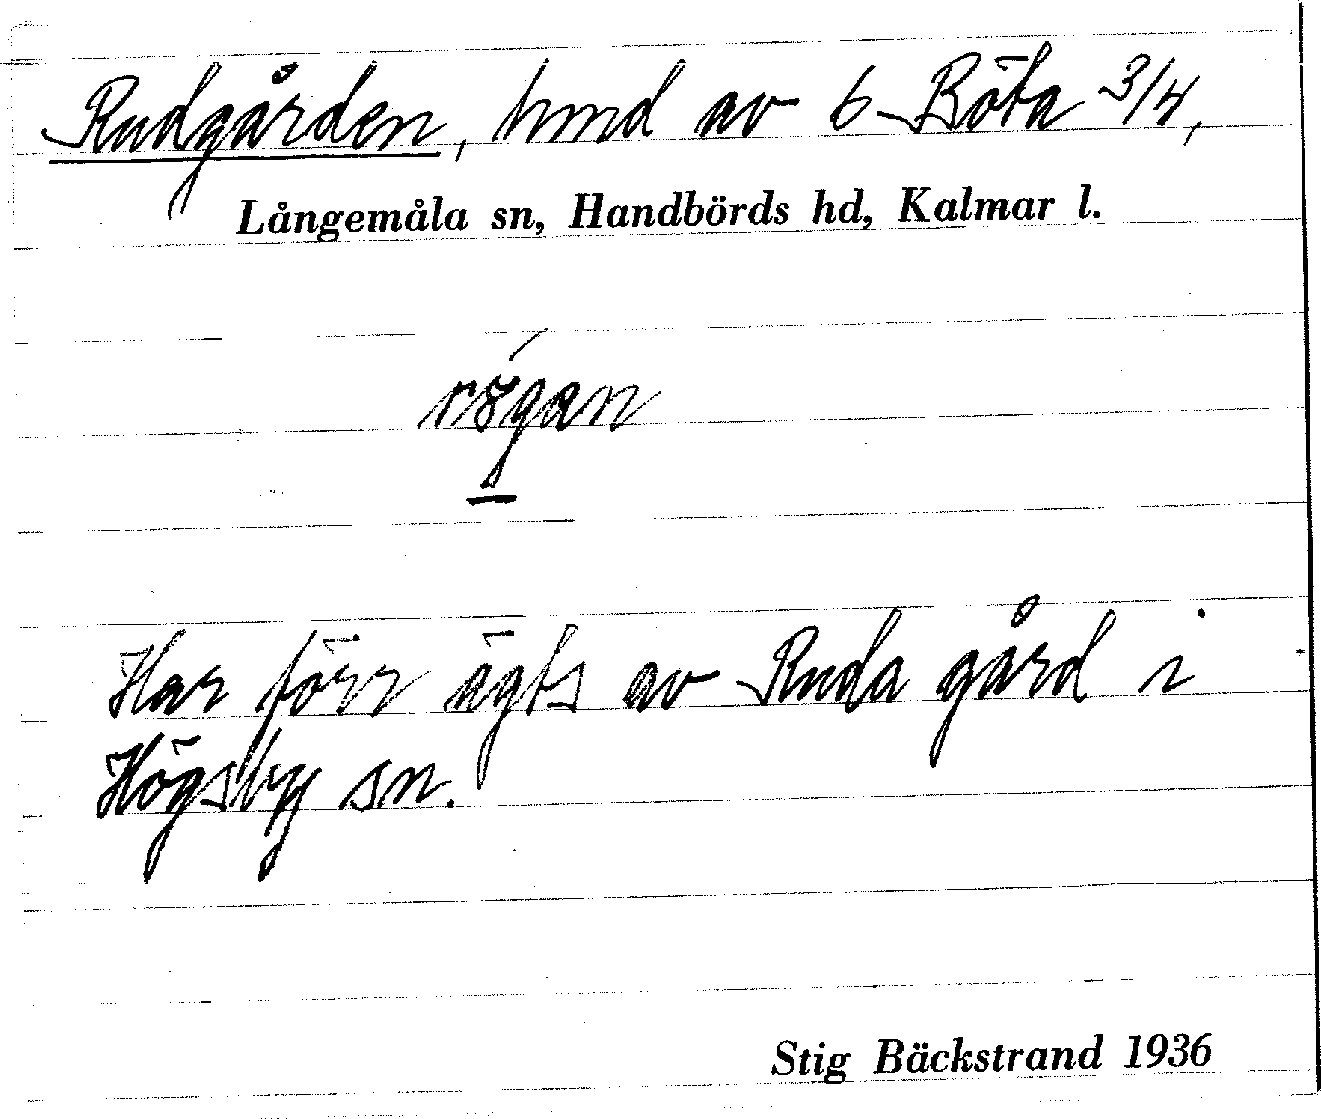 Rudgården, hmd av 6 Böta 3/4,
Långemåla sn, Handbörds hd, Kalmar l.
Har förr ägts av Ruda gård i
Högsby sn.
Stig Bäckstrand 1936